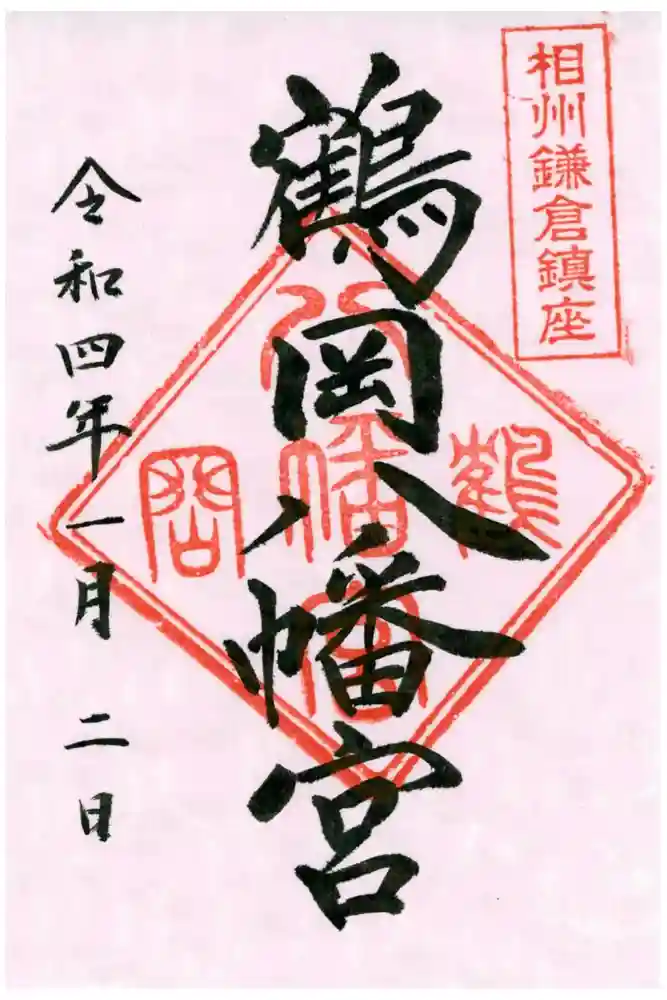 相州鎌倉鎮座
鶴岡八幡宮
鶴
岡
八
幡
宮
令和四年一月二日